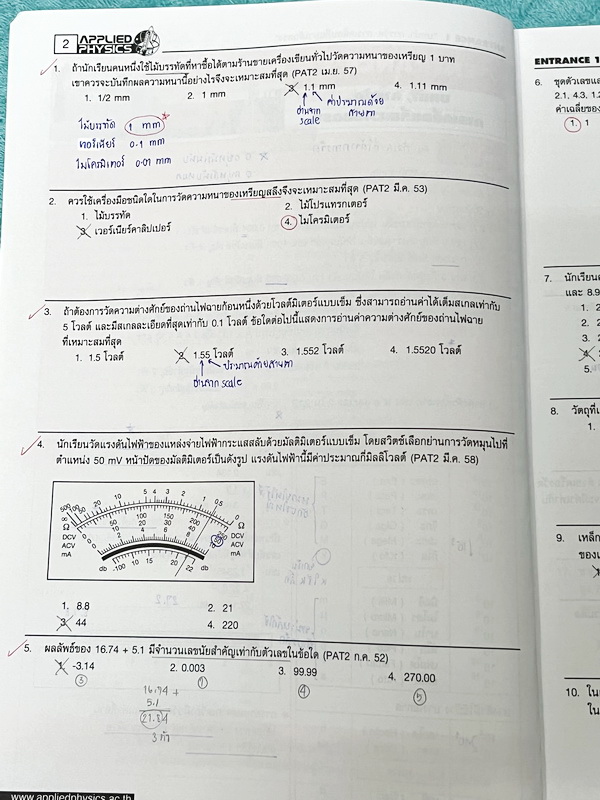 2 APPLIED PHYSICS
1. ถ้านักเรียนคนหนึ่งใช้ไม้บรรทัดที่หาซื้อได้ตามร้านขายเครื่องเขียนทั่วไปวัดความหนาของเหรียญ 1 บาท
เขาควรจะบันทึกผลความหนานี้อย่างไรจึงจะเหมาะสมที่สุด (PAT2 เม.ย. 57)
1. 1/2 mm 2. 1 mm 3. 1.1 mm 4. 1.11 mm
อ่านจาก scale
ค่าประมาณด้วยสายตา
ไม้บรรทัด 1 mm
เวอร์เนียร์ 0.1 mm
ไมโครมิเตอร์ 0.01 mm
2. ควรใช้เครื่องมือชนิดใดในการวัดความหนาของเหรียญสลึงจึงจะเหมาะสมที่สุด (PAT2 มี.ค. 53)
1. ไม้บรรทัด 2. ไม้โปรแทรกเตอร์
3. เวอร์เนียร์คาลิปเปอร์ 4. ไมโครมิเตอร์
3. ถ้าต้องการวัดความต่างศักย์ของถ่านไฟฉายก้อนหนึ่งด้วยโวลต์มิเตอร์แบบเข็ม ซึ่งสามารถอ่านค่าได้เต็มสเกลเท่ากับ
5 โวลต์ และมีสเกลละเอียดที่สุดเท่ากับ 0.1 โวลต์ ข้อใดต่อไปนี้แสดงการอ่านค่าความต่างศักย์ของถ่านไฟฉาย
ที่เหมาะสมที่สุด
1. 1.5 โวลต์ 2. 1.55 โวลต์ 3. 1.552 โวลต์ 4. 1.5520 โวลต์
ประมาณด้วยสายตา
อ่านจาก scale
4. นักเรียนวัดแรงดันไฟฟ้าของแหล่งจ่ายไฟฟ้ากระแสสลับด้วยมัลติมิเตอร์แบบเข็ม โดยสวิตช์เลือกย่านการวัดหมุนไปที่
ตำแหน่ง 50 mV หน้าปัดของมัลติมิเตอร์เป็นดังรูป แรงดันไฟฟ้านี้มีค่าประมาณกี่มิลลิโวลต์ (PAT2 มี.ค. 58)
500 100 50 20 10 5 4 3 2 1 0.5 0
∞
Ω Ω
DCV DCV
ACV ACV
mA mA
50 100 150 200
10 20 30 40
2 4 6 8
db -100 10 15 20 22 db
1. 8.8 2. 21
3. 44 4. 220
5. ผลลัพธ์ของ 16.74 + 5.1 มีจำนวนเลขนัยสำคัญเท่ากับตัวเลขในข้อใด (PAT2 ก.ค. 52)
1. -3.14 2. 0.003 3. 99.99 4. 270.00
3 1 4 5
16.74 +
5.1
21.84
3 ตัว
www.appliedphysics.ac.th
ENTRANCE 1
6. ชุดตัวเลขแส
2.1, 4.3, 1.2
ค่าเฉลี่ยของ
1. 1
7. นักเรียน
และ 8.9
1. 2
2. 2
3. 2
4.
5.
8. วัตถุที่เ
1.
9. เหล็ก
ของเ
10. ในก
ใน